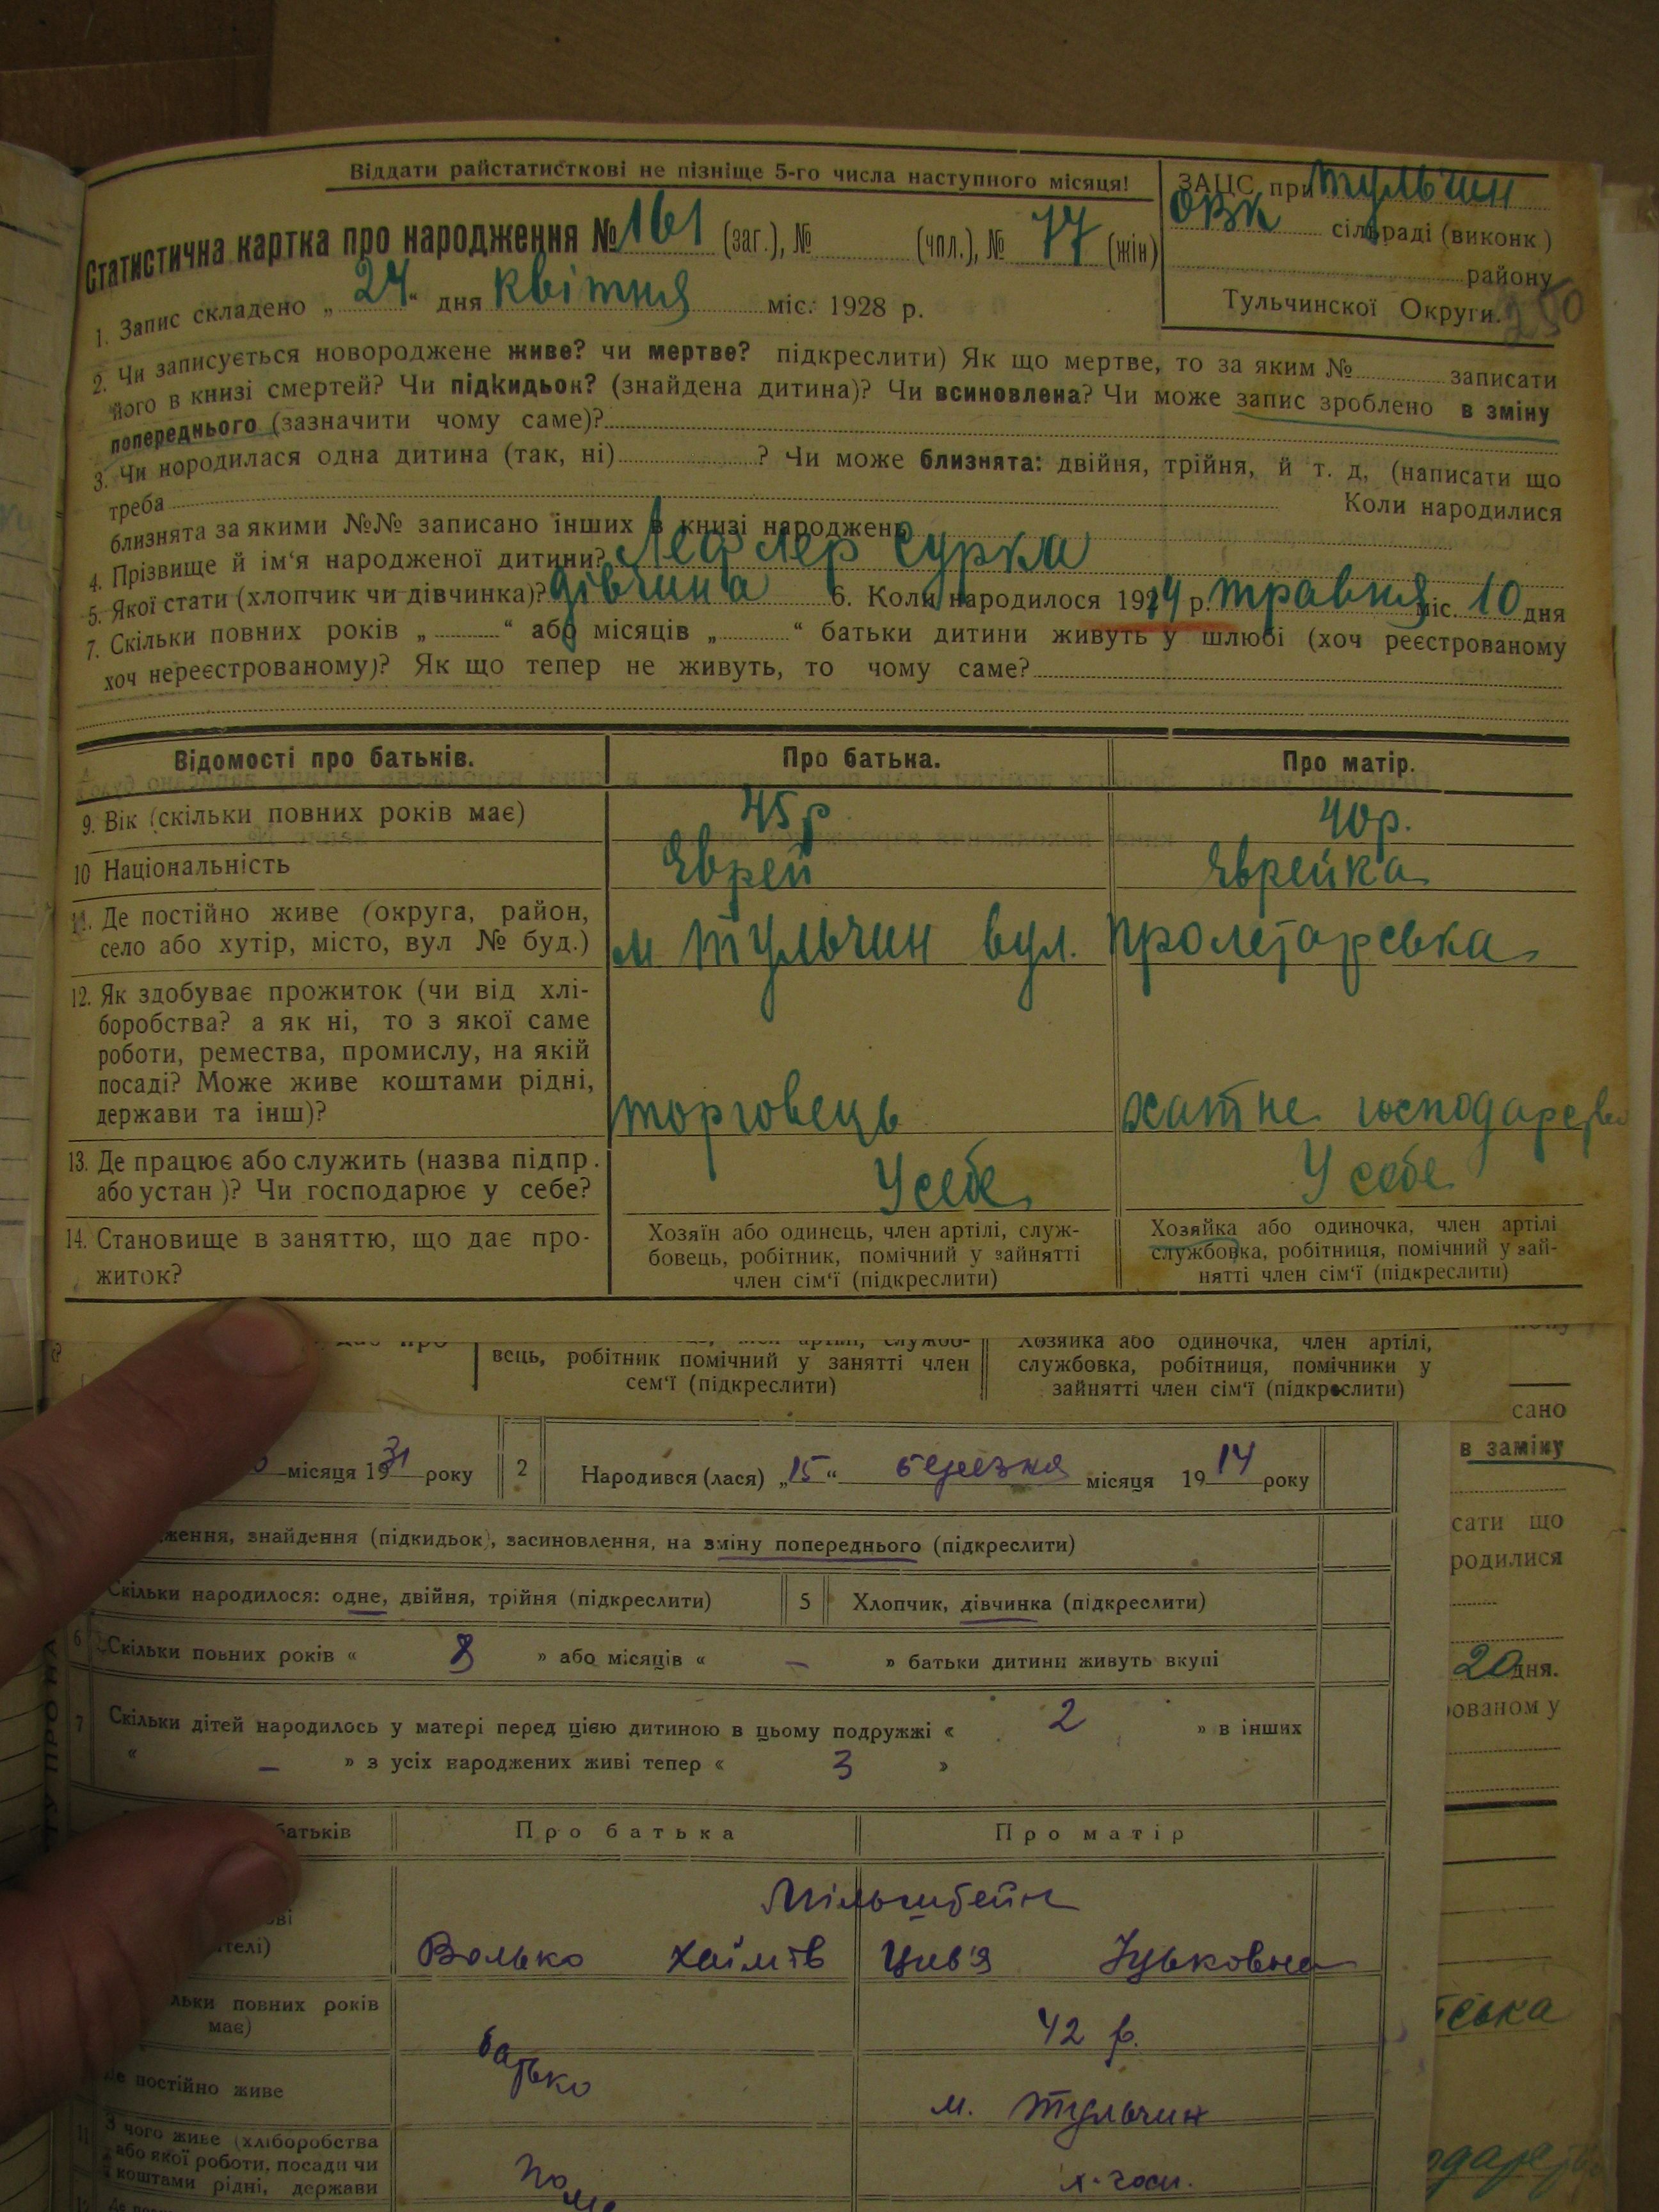 Віддати райстатисткові не пізніще 5-го числа наступного місяця!
ЗАЦС при Тульчин
ОВК сільраді (виконк.)
району
Тульчинскої Округи.
250
Статистична картка про народження № 161 (заг.), № (чпл.), № 77 (жін)
1. Запис складено „ 24 “ дня квітня міс. 1928 р.
2. Чи записується новороджене живе? чи мертве? підкреслити) Як що мертве, то за яким № записати
його в книзі смертей? Чи підкидьок? (знайдена дитина)? Чи всиновлена? Чи може запис зроблено в зміну
попереднього (зазначити чому саме)?
3. Чи нородилася одна дитина (так, ні) ? Чи може близнята: двійня, трійня, й т. д, (написати що
треба Коли народилися
близнята за якими №№ записано інших в книзі народжень
4. Прізвище й ім‘я народженої дитини? Лефлер Сурка
5. Якої стати (хлопчик чи дівчинка)? дівчина 6. Коли народилося 1914 р. травня міс. 10 дня
7. Скільки повних років „ “ або місяців „ “ батьки дитини живуть у шлюбі (хоч реєстрованому
хоч нереєстрованому)? Як що тепер не живуть, то чому саме?
Відомості про батьків. Про батька. Про матір.
9. Вік (скільки повних років має) 45 р 40 р.
10 Національність Єврей Єврейка
11. Де постійно живе (округа, район,
село або хутір, місто, вул № буд.) м Тульчин вул. Пролетарська
12. Як здобуває прожиток (чи від хлі-
боробства? а як ні, то з якої саме
роботи, ремества, промислу, на якій
посаді? Може живе коштами рідні,
держави та інш)? торговець хатне господарство
13. Де працює або служить (назва підпр.
або устан )? Чи господарює у себе? У себе У себе
14. Становище в заняттю, що дає про-
житок?
Хозяїн або одинець, член артілі, служ-
бовець, робітник, помічний у зайнятті
член сім‘ї (підкреслити)
Хозяйка або одиночка, член артілі
службовка, робітниця, помічний у зай-
нятті член сім‘ї (підкреслити)
вець, робітник помічний у занятті член
сем‘ї (підкреслити)
Хозяйка або одиночка, член артілі,
службовка, робітниця, помічники у
зайнятті член сім‘ї (підкреслити)
сано
в заміну
місяця 1931 року 2 Народився (лася) „15“ березня місяця 1914 року
ження, знайдення (підкидьок), засиновлення, на зміну попереднього (підкреслити)
сати що
родилися
Скільки народилося: одне, двійня, трійня (підкреслити) 5 Хлопчик, дівчинка (підкреслити)
6 Скільки повних років « 8 » або місяців « – » батьки дитини живуть вкупі
20 дня.
ованом у
7 Скільки дітей народилось у матері перед цією дитиною в цьому подружжі « 2 » в інших
« – » з усіх народжених живі тепер « 3 »
батьків Про батька Про матір
Мільштейн
Волько Хаїмів Цив'я Зуськовна
повних років
має) 42 р.
батько
Де постійно живе м. Тульчин
11 З чого живе (хліборобства
або якої роботи, посади чи
коштами рідні, держави
х-госп.